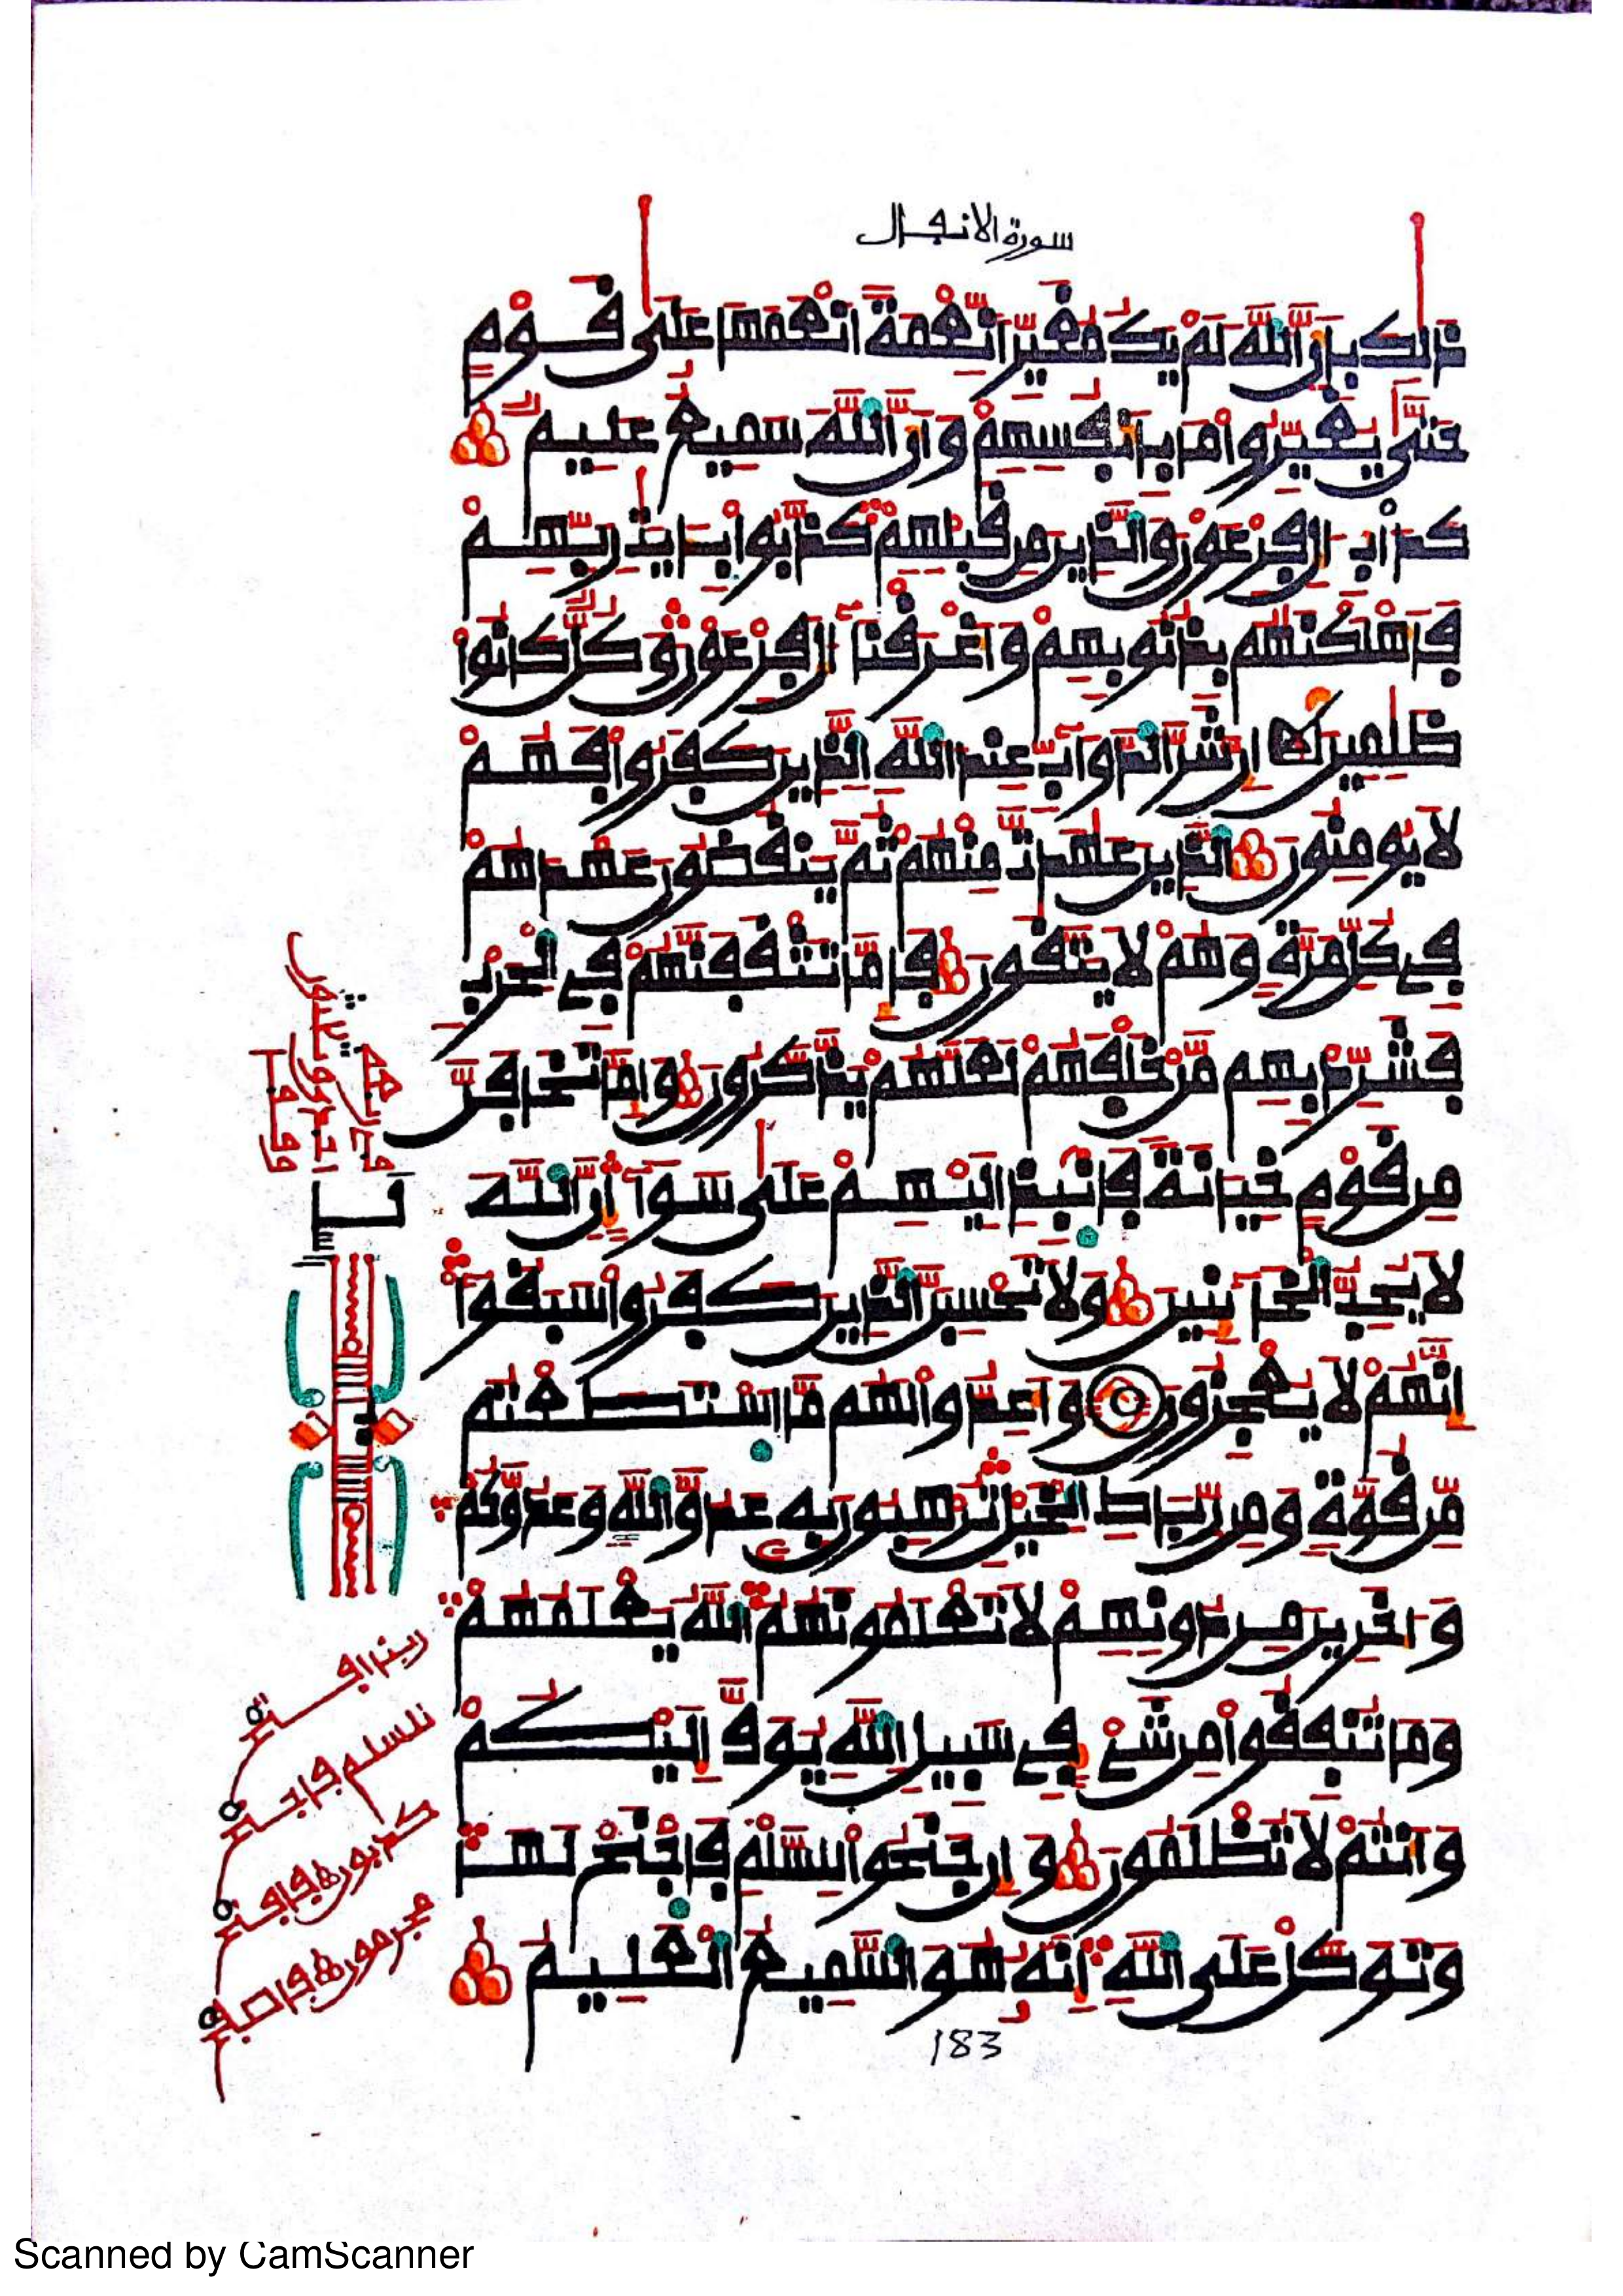 سورة الانفال
ذلك بأن الله لم يك مغيرا نعمة انعمها على قوم
حتى يغيروا ما بأنفسهم وأن الله سميع عليم
كدأب ال فرعون والذين من قبلهم كذبوا بايت ربهم
فأهلكنهم بذنوبهم وأغرقنا ال فرعون وكل كانوا
ظلمين ان شر الدواب عند الله الذين كفروا فهم
لا يومنون الذين عهدت منهم ثم ينقضون عهدهم
في كل مرة وهم لا يتقون فإما تثقفنهم في الحرب
فشرد بهم من خلفهم لعلهم يذكرون وإما تخافن
من قوم خيانة فانبذ اليهم على سواء ان الله
لا يحب الخائنين ولا تحسبن الذين كفروا سبقوا
انهم لا يعجزون وأعدوا لهم ما استطعتم
من قوة ومن رباط الخيل ترهبون به عدو الله وعدوكم
واخرين من دونهم لا تعلمونهم الله يعلمهم
وما تنفقوا من شيء في سبيل الله يوف اليكم
وأنتم لا تظلمون وإن جنحوا للسلم فاجنح لها
وتوكل على الله انه هو السميع العليم
183
Scanned by CamScanner